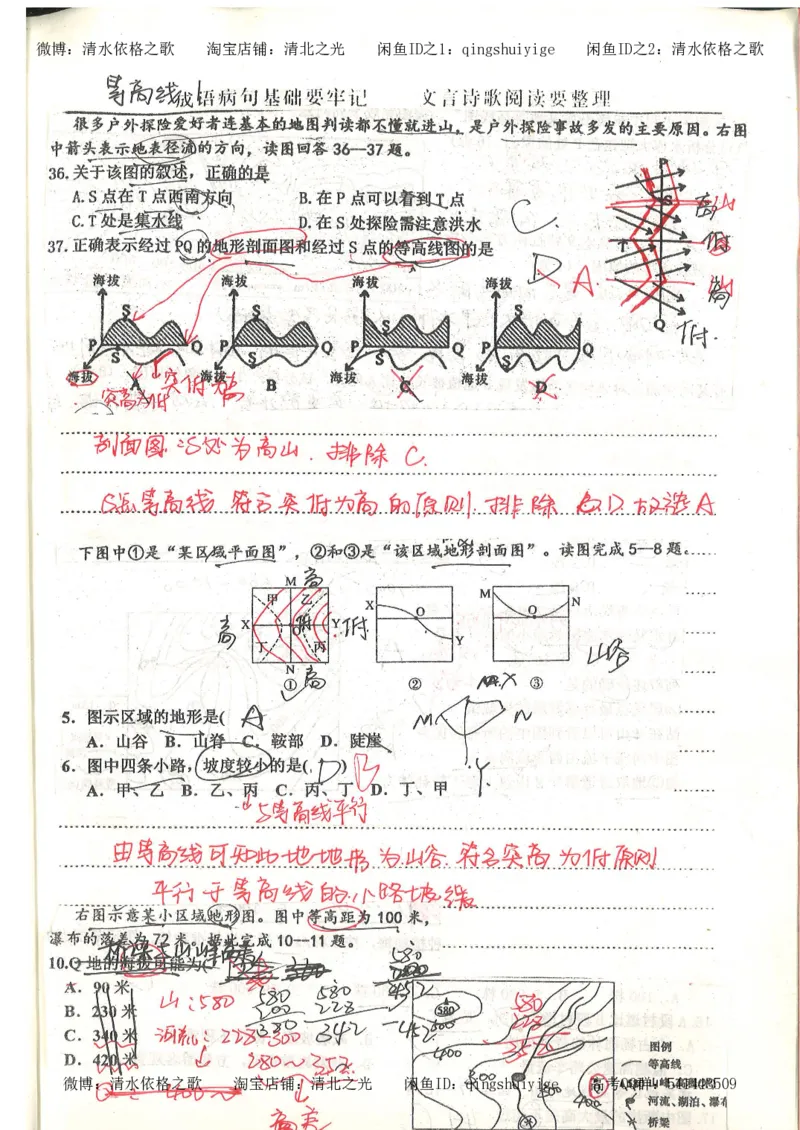 微博：清水依格之歌 淘宝店铺：清北之光 闲鱼ID之1：qingshuiyige 闲鱼ID之2：清水依格之歌
等高线
成语病句基础要牢记 文言诗歌阅读要整理
很多户外探险爱好者连基本的地图判读都不懂就进山，是户外探险事故多发的主要原因。右图
中箭头表示地表径流的方向，读图回答36—37题。
36.关于该图的叙述，正确的是
A.S点在T点西南方向 B.在P点可以看到T点
C.T处是集水线 D.在S处探险需注意洪水
C.
37.正确表示经过PQ的地形剖面图和经过S点的等高线图的是
D A.
P
S
T
Q
高
低
高
低.
海拔 海拔 海拔 海拔
S S S S
P Q P Q P Q P Q
S S S S
海拔 海拔 海拔 海拔
A B C D
突高为低 突低为高
剖面图:S处为高山.排除 C.
S岳等高线 符合突低为高的原则.排除 BD 故选A
下图中①是“某区域平面图”，②和③是“该区域地形剖面图”。读图完成5—8题。
M 高
甲 乙
高 X O Y 低
丁 丙
N 高
①
X O Y
②
M O N
③
山谷
M N
Y.
5. 图示区域的地形是( A
A. 山谷 B. 山脊 C. 鞍部 D. 陡崖
6. 图中四条小路，坡度较小的是( D ) B
A. 甲、乙 B. 乙、丙 C. 丙、丁 D. 丁、甲
与等高线平行
由等高线可知此地地形为山谷 符合突高为低原则
平行于等高线的小路坡缓
右图示意某小区域地形图。图中等高距为100米，
瀑布的落差为72米。据此完成10—11题。
10.Q地的海拔可能为(
A. 90米
B. 230米
C. 340米
D. 420米
山:580
河流:228~300
280~352
580
228
352
580
200
380
580
228
342
580
580
228
352
400
300
400
图例
等高线
河流、湖泊、瀑布
桥梁
微博：清水依格之歌 淘宝店铺：清北之光 闲鱼ID：qingshuiyige
高差